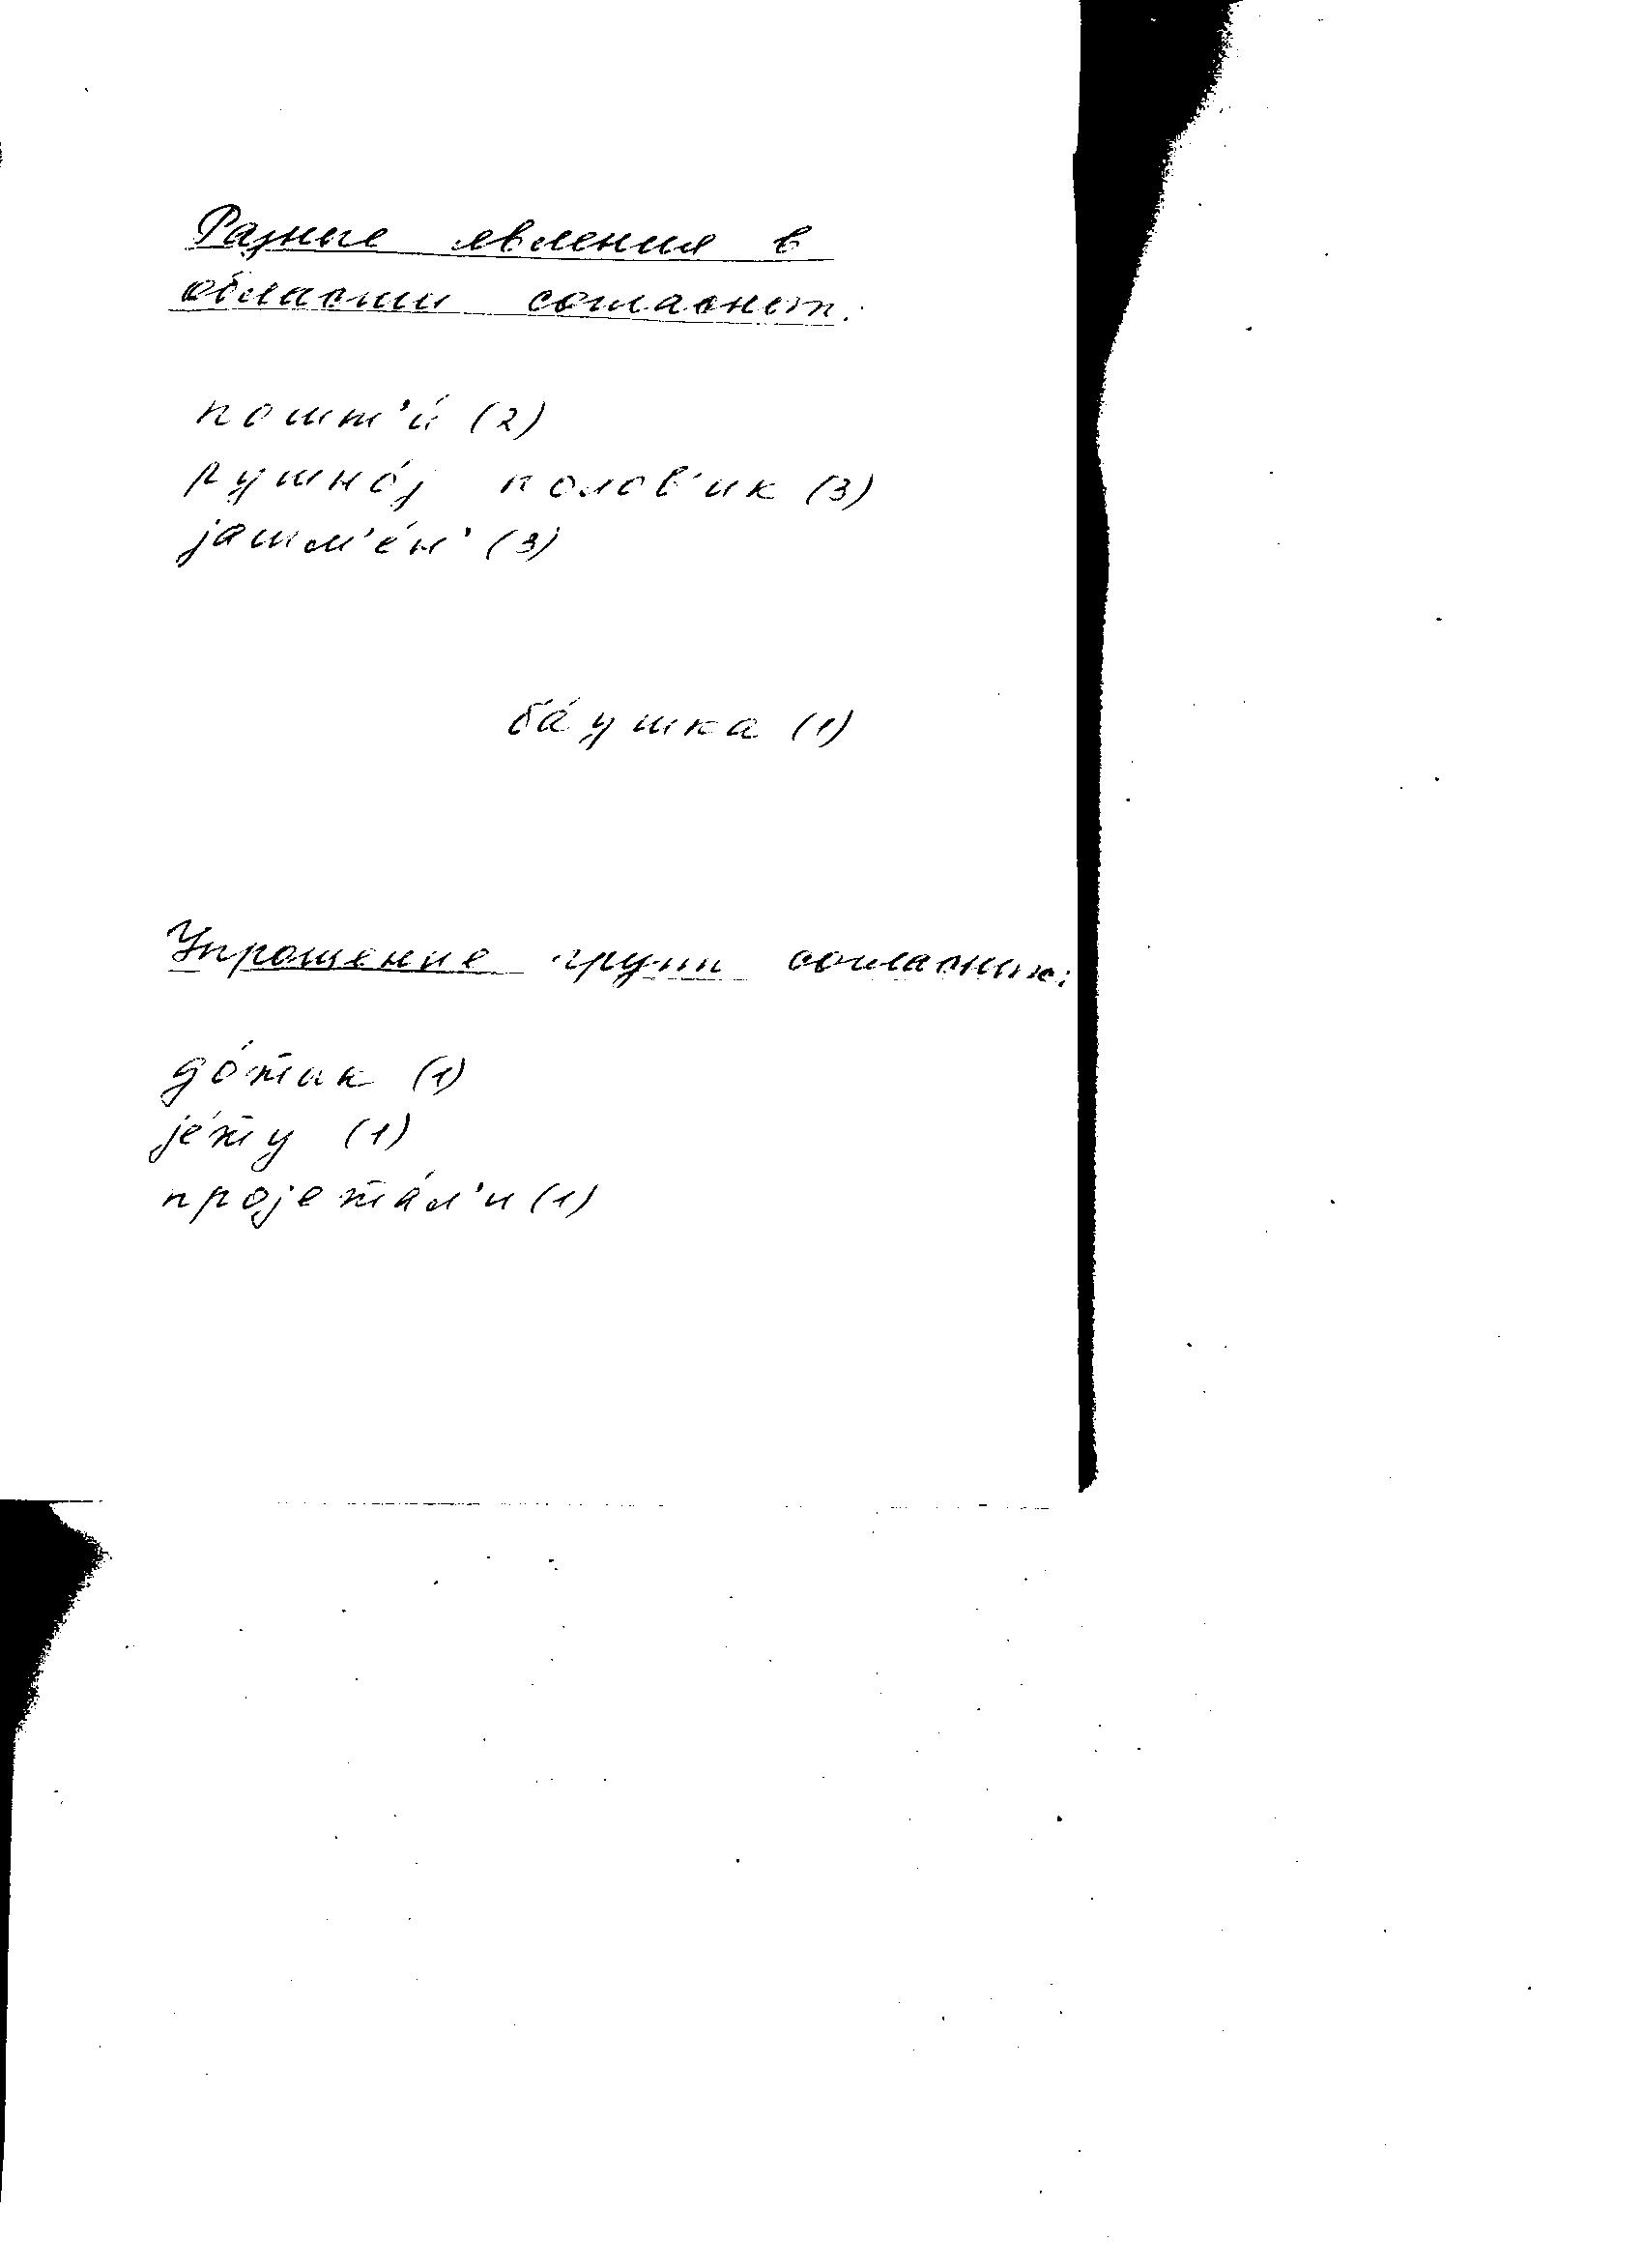 Разные явления в
области согласных.
пошт'и́ (2)
рушно́j полов'ик (3)
jашм'е́н' (3)
ба́ушка (1)
Упрощение групп согласных:
до́т̄ик (1)
jе́т̄у (1)
проjет̄а́л'и (1)